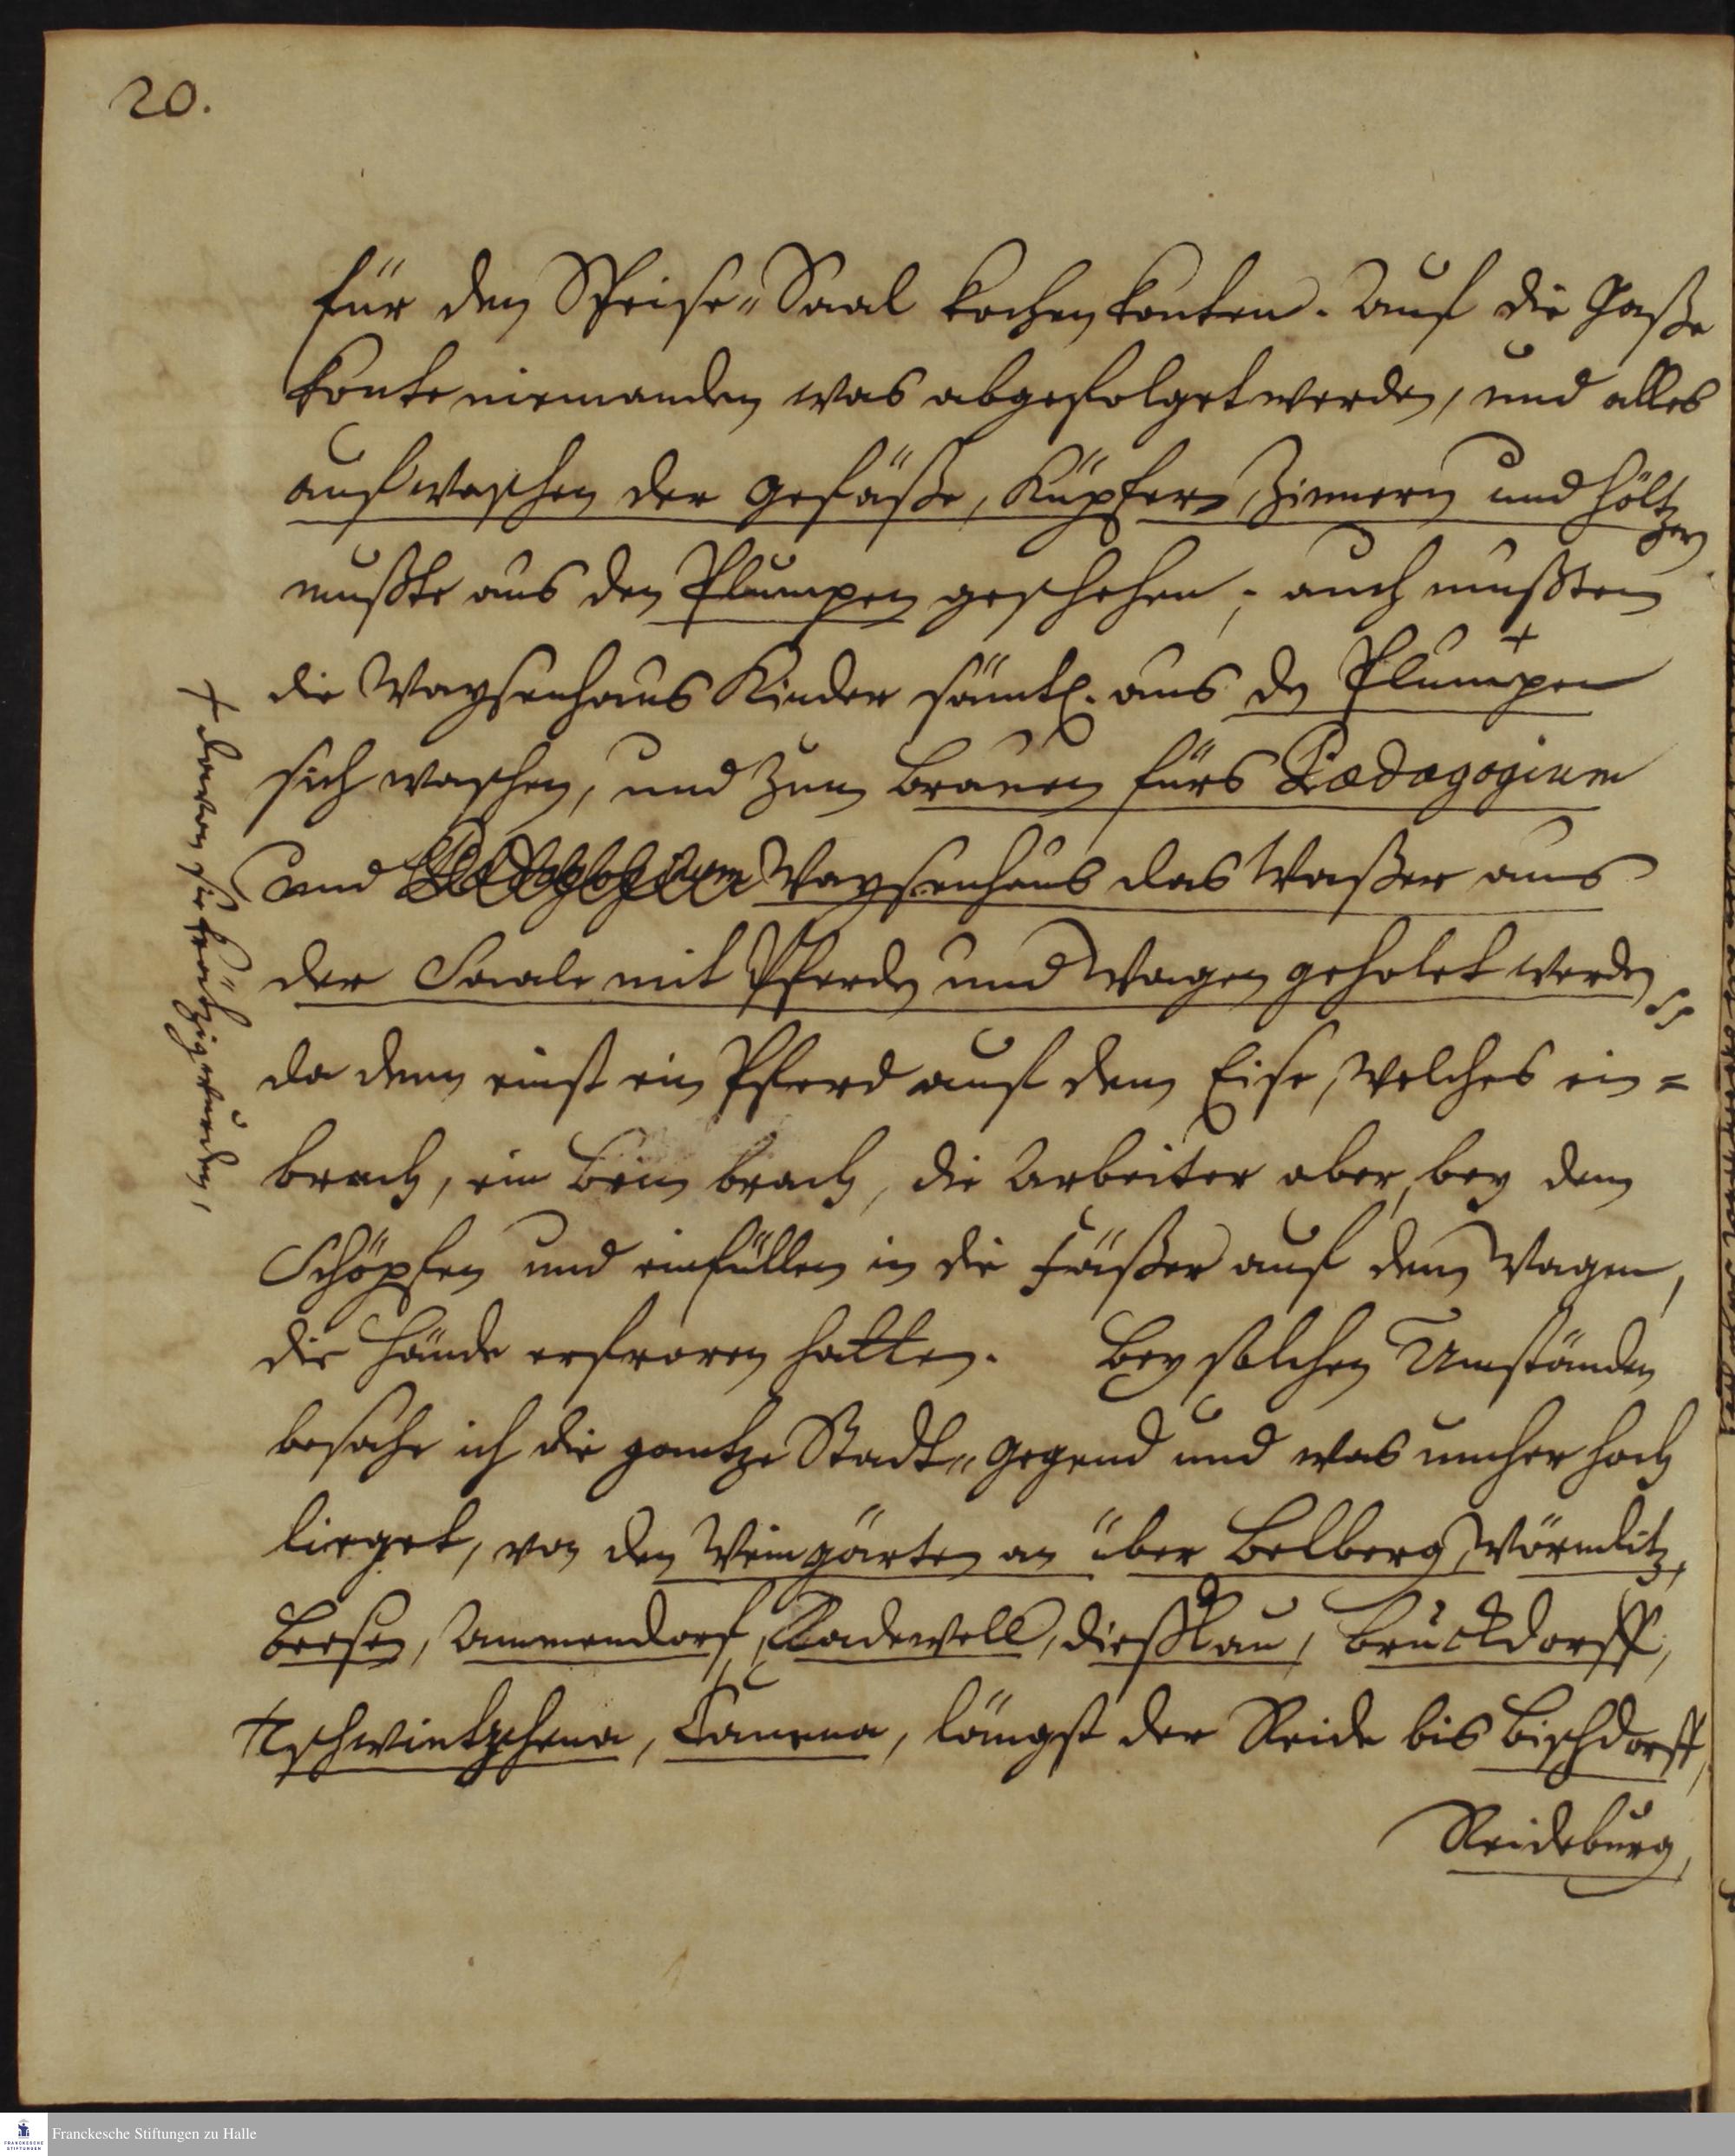 20.
für den Speise-Saal kochen konten. Auf die Gaße
konte niemanden was abgefolget werden, und alles
aufwaschen der Gefäße, Küpfern, Zinnern und höltzern
mußte aus den Plumpen geschehen; auch mußten
die Waysenhaus Kinder sämtl. aus den Plumpen +
sich waschen, und zum Brauen fürs Pædagogium
und Waysenhaus das Waßer aus
der Saale mit Pferden und Wagen geholet werden
da denn einst ein Pferd auf dem Eise, welches ein=
brach, ein Bein brach, die Arbeiter aber, bey dem
Schöpfen und einfüllen in die Fäßer auf dem Wagen,
die Hände erfroren hatten. Bey solchen Umständen
besahe ich die gantze Stadt-Gegend und was umher hoch
lieget, von den Weingärten an über Belberg, Wörmlitz,
Beesen, Ammendorf, Radewell, Dießkau, Bruckdorff,
Tschwintzschena, Canena, längst der Reide bis Bischdorff,
Reideburg,
+ davon sie krätzig wurden,
Franckesche Stiftungen zu Halle
FRANCKESCHE
STIFTUNGEN